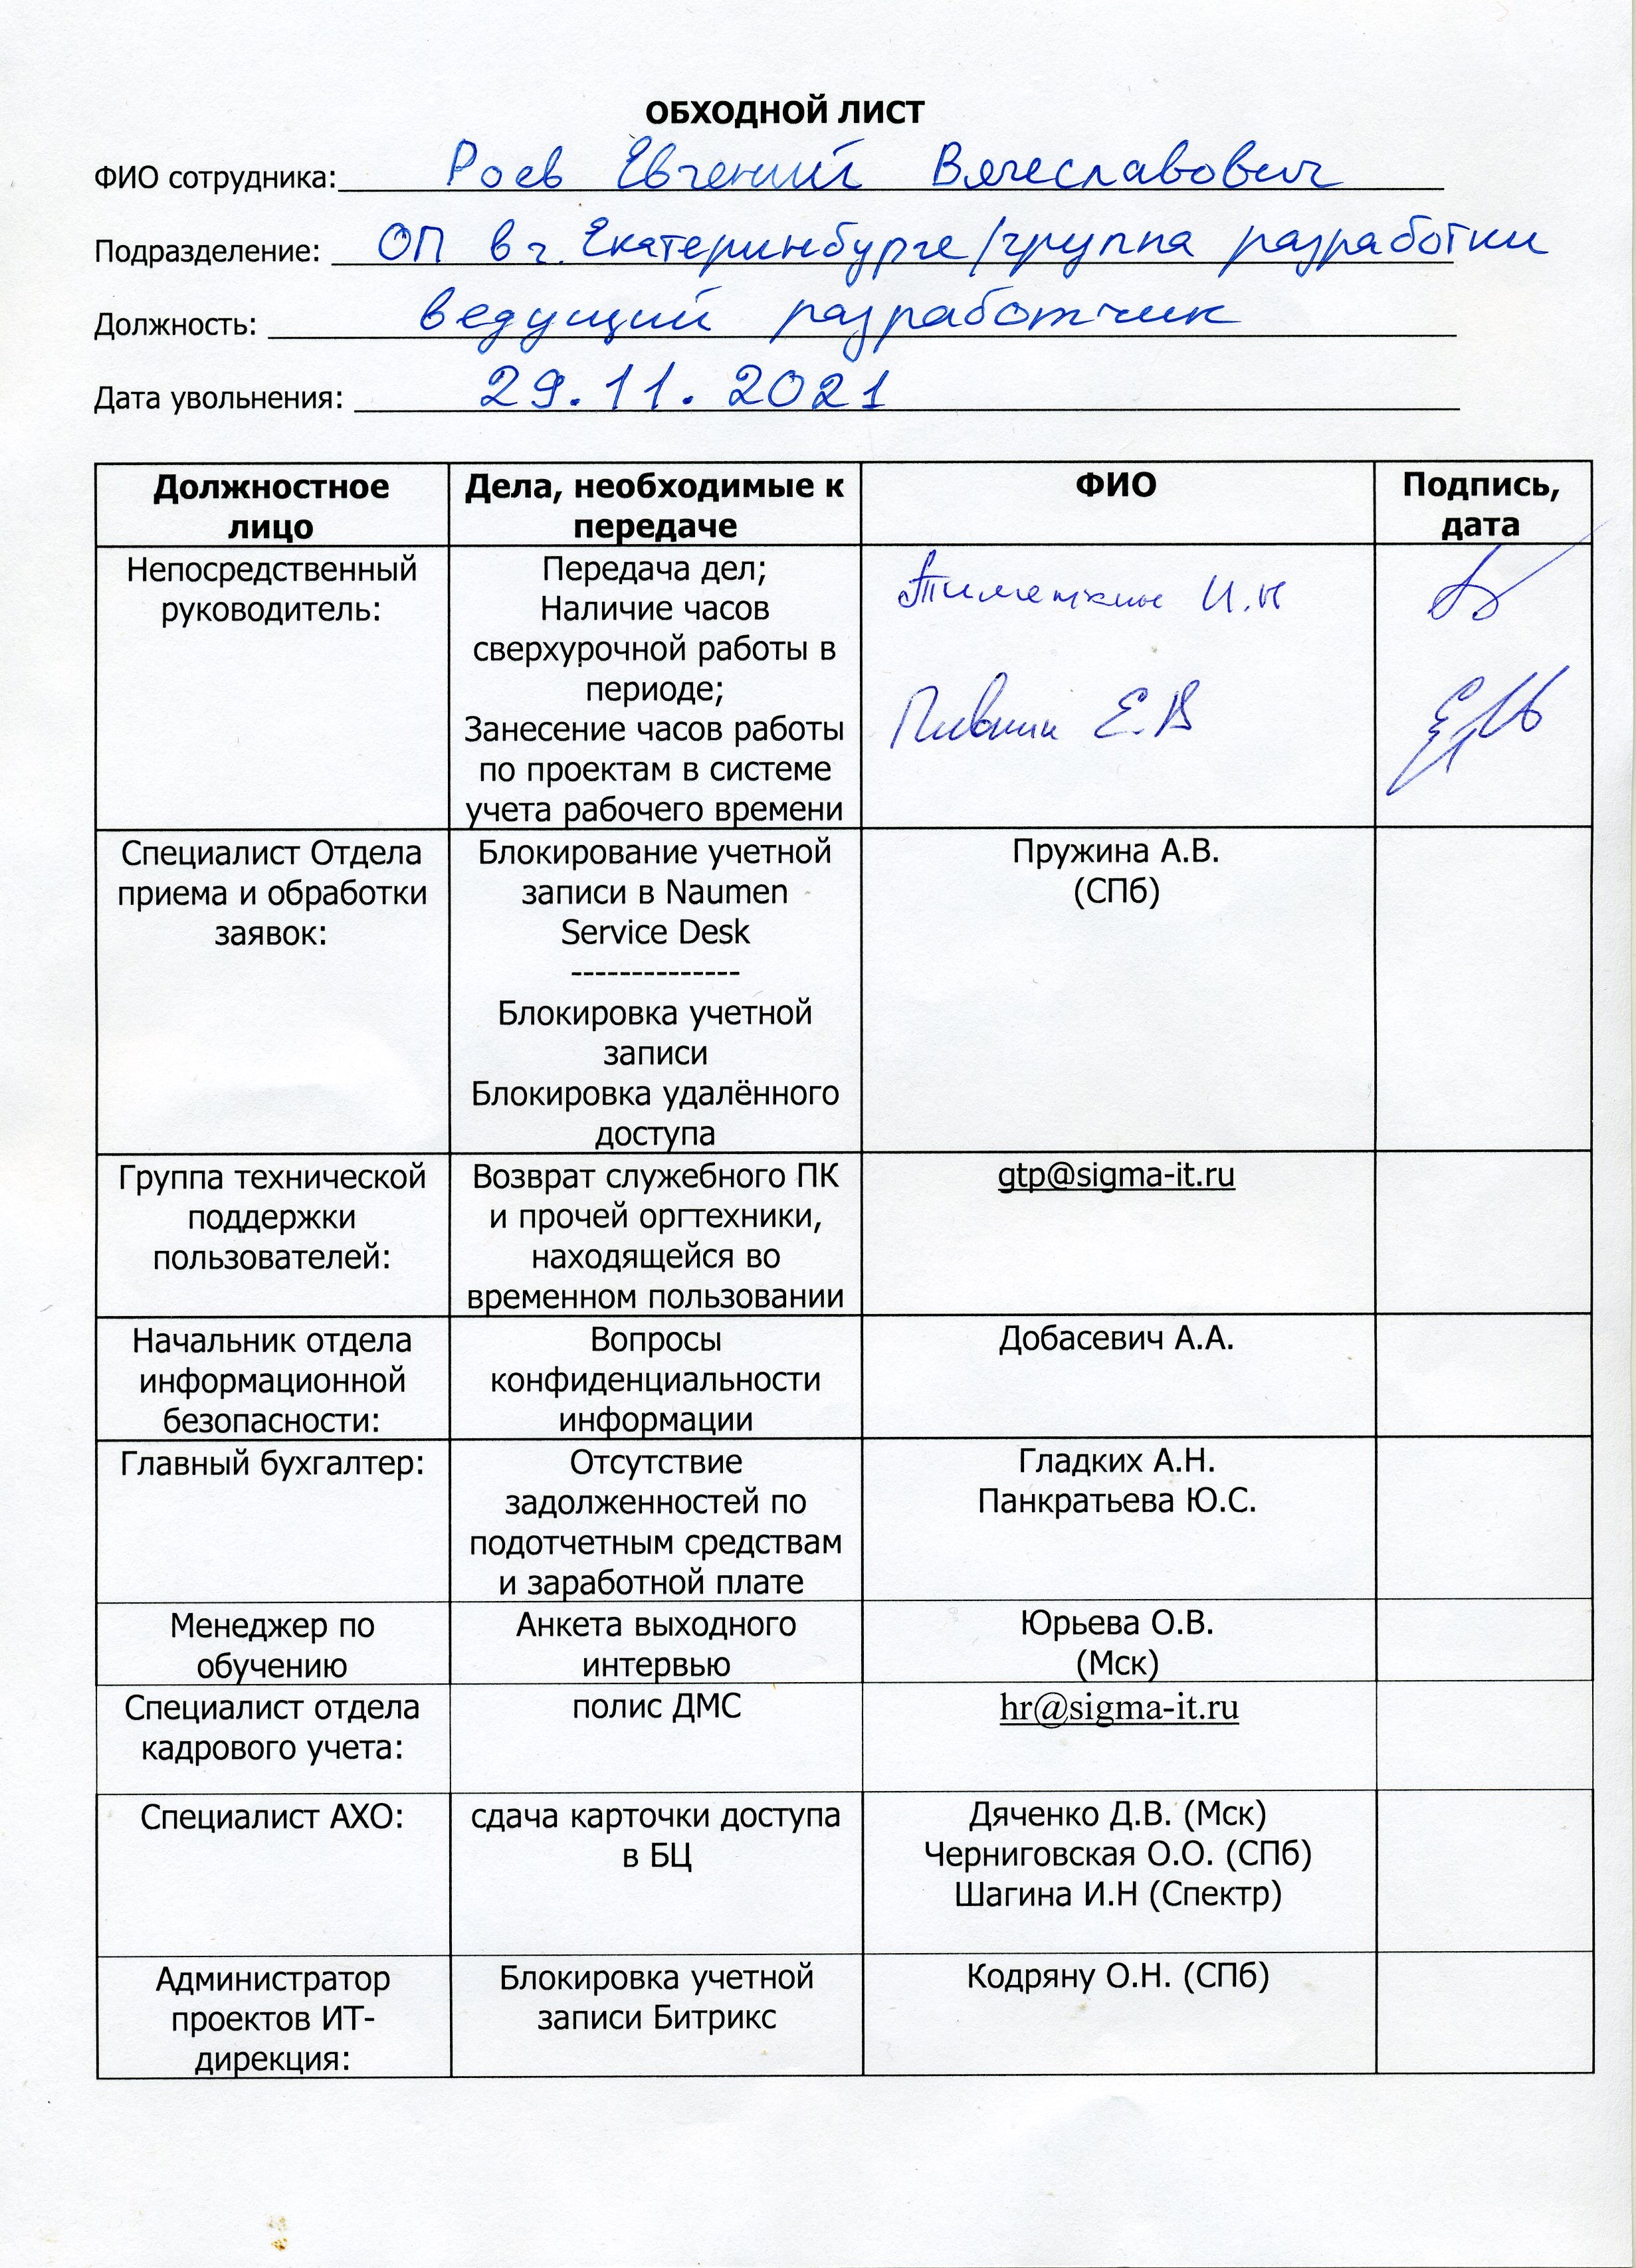 ОБХОДНОЙ ЛИСТ
ФИО сотрудника: Роев Евгений Вячеславович
Подразделение: ОП в г. Екатеринбурге/группа разработки
Должность: ведущий разработчик
Дата увольнения: 29.11.2021
Должностное
лицо
Дела, необходимые к
передаче
ФИО
Подпись,
дата
Непосредственный
руководитель:
Передача дел;
Наличие часов
сверхурочной работы в
периоде;
Занесение часов работы
по проектам в системе
учета рабочего времени
И.Н
Пивнин Е.В
Специалист Отдела
приема и обработки
заявок:
Блокирование учетной
записи в Naumen
Service Desk
--------------
Блокировка учетной
записи
Блокировка удалённого
доступа
Пружина А.В.
(СПб)
Группа технической
поддержки
пользователей:
Возврат служебного ПК
и прочей оргтехники,
находящейся во
временном пользовании
gtp@sigma-it.ru
Начальник отдела
информационной
безопасности:
Вопросы
конфиденциальности
информации
Добасевич А.А.
Главный бухгалтер:
Отсутствие
задолженностей по
подотчетным средствам
и заработной плате
Гладких А.Н.
Панкратьева Ю.С.
Менеджер по
обучению
Анкета выходного
интервью
Юрьева О.В.
(Мск)
Специалист отдела
кадрового учета:
полис ДМС
hr@sigma-it.ru
Специалист АХО:
сдача карточки доступа
в БЦ
Дяченко Д.В. (Мск)
Черниговская О.О. (СПб)
Шагина И.Н (Спектр)
Администратор
проектов ИТ-
дирекция:
Блокировка учетной
записи Битрикс
Кодряну О.Н. (СПб)